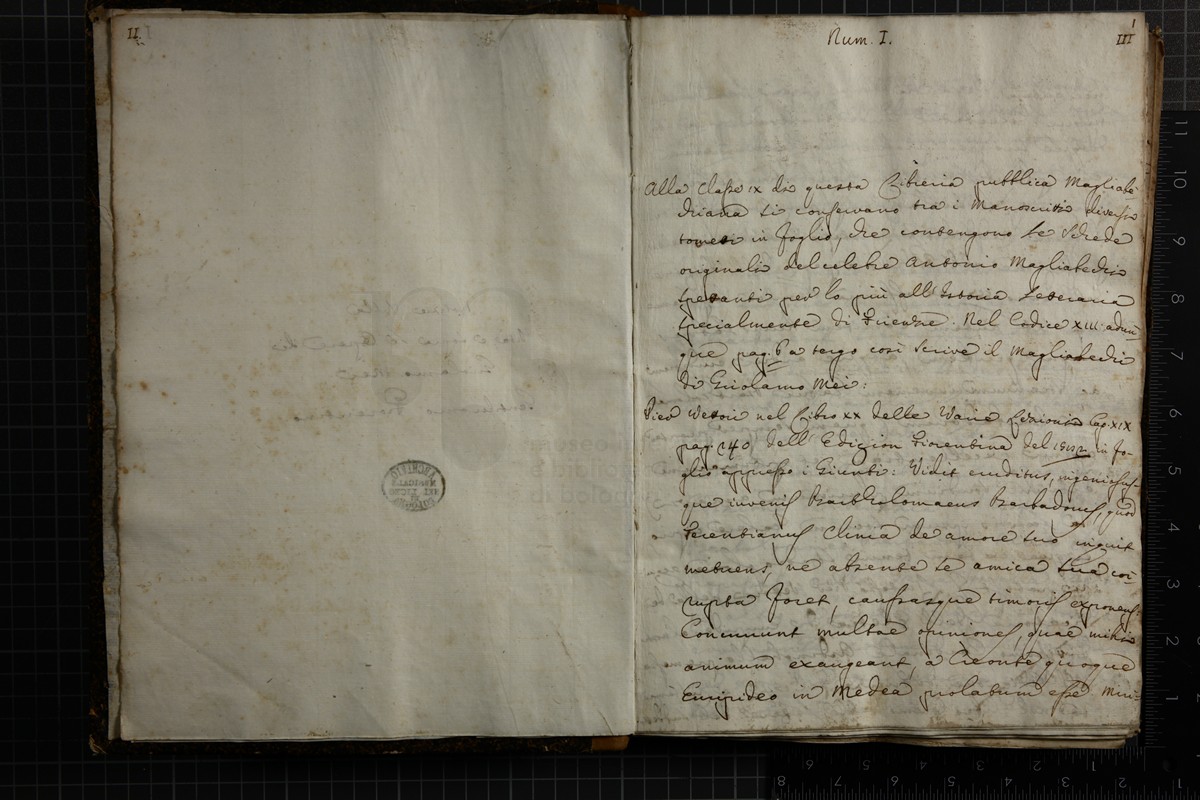 II
Num. I.
1
III
Alla Classe IX di questa Libreria pubblica Magliabe-
chiana si conservano tra i Manoscritti diversi
tometti in foglio, che contengono le Schede
originali del celebre Antonio Magliabechi
spettanti per lo più all'Istoria Letteraria
specialmente di Firenze. Nel Codice XIII adun-
que pag. 6 a tergo così scrive il Magliabechi
di Girolamo Mei:
Pier Vettori nel Libro XX delle Varie Lezioni Cap. XIX
pag. 240 dell'Edizion Fiorentina del in fo-
glio appresso i Giunti: Vidit eruditus, ingeniosus-
que invenis Bartholomaeus Barbadorus, quod
Terentianus Clinia de amore suo inquit
metuens, ne absente se amica sua cor-
rupta foret, caussasque timoris exponens:
Concurrunt multae opiniones, quae mihi
animum exaugeant, a Creonte quoque
Euripideo in Medea prolatum esse. Mul-